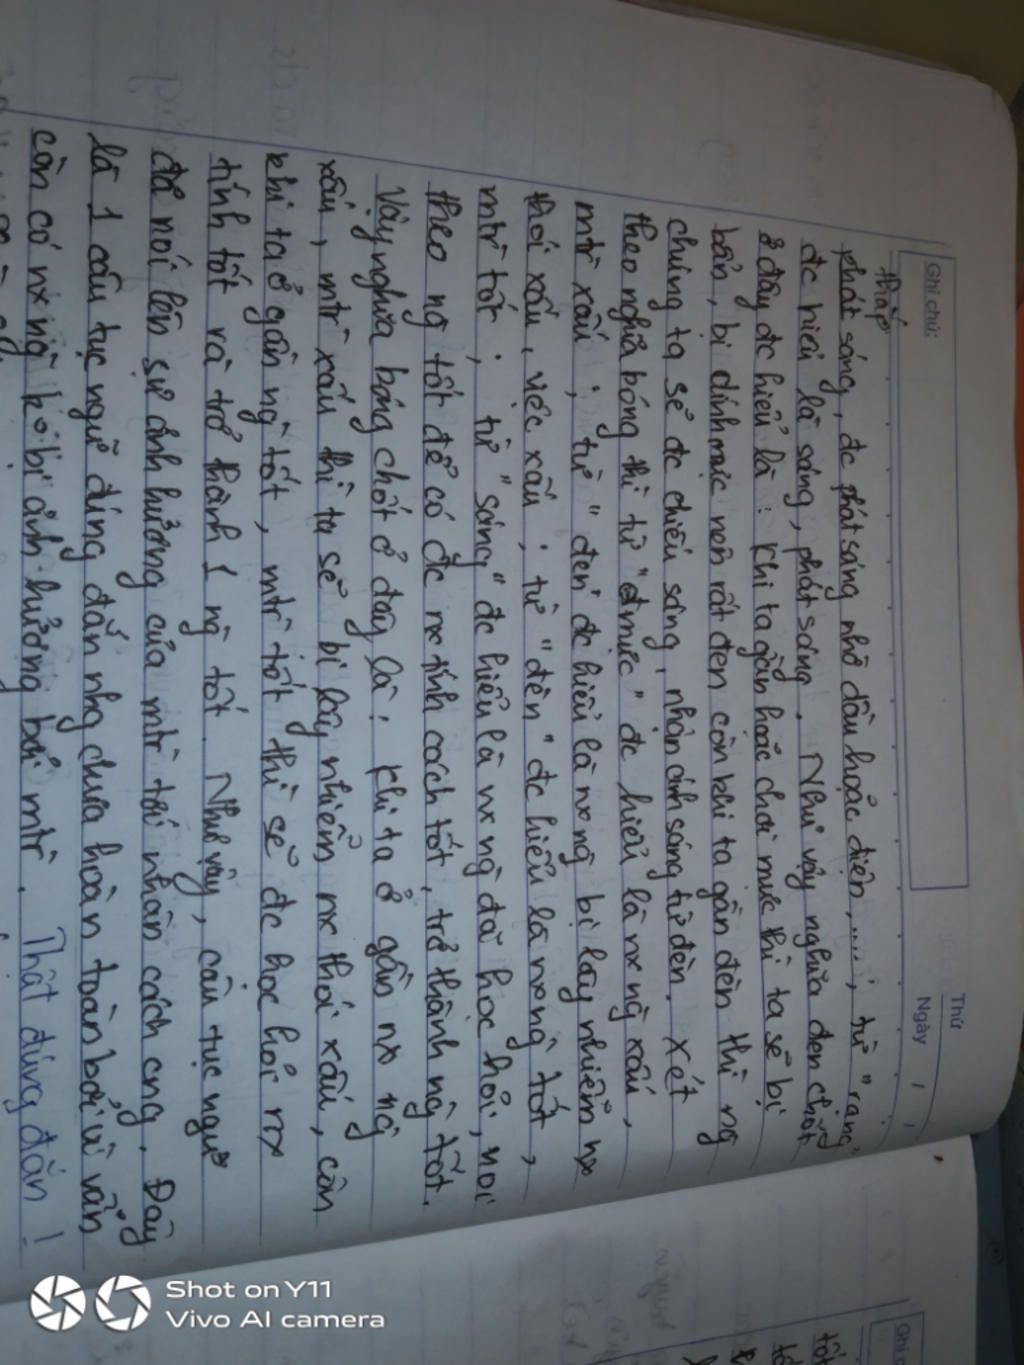 Thứ
Ngày / /
Ghi chú:
thắp
phát sáng, đc phát sáng nhờ dầu hoặc điện,....; từ "rạng"
đc hiểu là sáng, phát sáng. Như vậy nghĩa đen chốt
ở đây đc hiểu là: Khi ta gần hoặc chơi mực thì ta sẽ bị
bẩn, bị dính mực nên rất đen còn khi ta gần đèn thì ng
chúng ta sẽ đc chiếu sáng, nhận ánh sáng từ đèn. Xét
theo nghĩa bóng thì từ "mực" đc hiểu là nx ng xấu,
mtr xấu; từ "đen" đc hiểu là nx ng bị lây nhiễm nx
thói xấu, việc xấu; từ "đèn" đc hiểu là nx ng tốt,
mtr tốt; từ "sáng" đc hiểu là nx ng đã học hỏi, noi
theo ng tốt để có đc nx tính cách tốt, trở thành ng tốt.
Vậy nghĩa bóng chốt ở đây là: Khi ta ở gần nx ng
xấu, mtr xấu thì ta sẽ bị lây nhiễm nx thói xấu, còn
khi ta ở gần ng tốt, mtr tốt thì sẽ đc học hỏi nx
tính tốt và trở thành 1 ng tốt. Như vậy, câu tục ngữ
đã nói lên sự ảnh hưởng của mtr tới nhân cách cng. Đây
là 1 câu tục ngữ đúng đắn nhg chưa hoàn toàn bởi vì vẫn
còn có nx ng ko bị ảnh hưởng bởi mtr. Thật đúng đắn!
Ghi
tối
Shot on Y11
Vivo AI camera